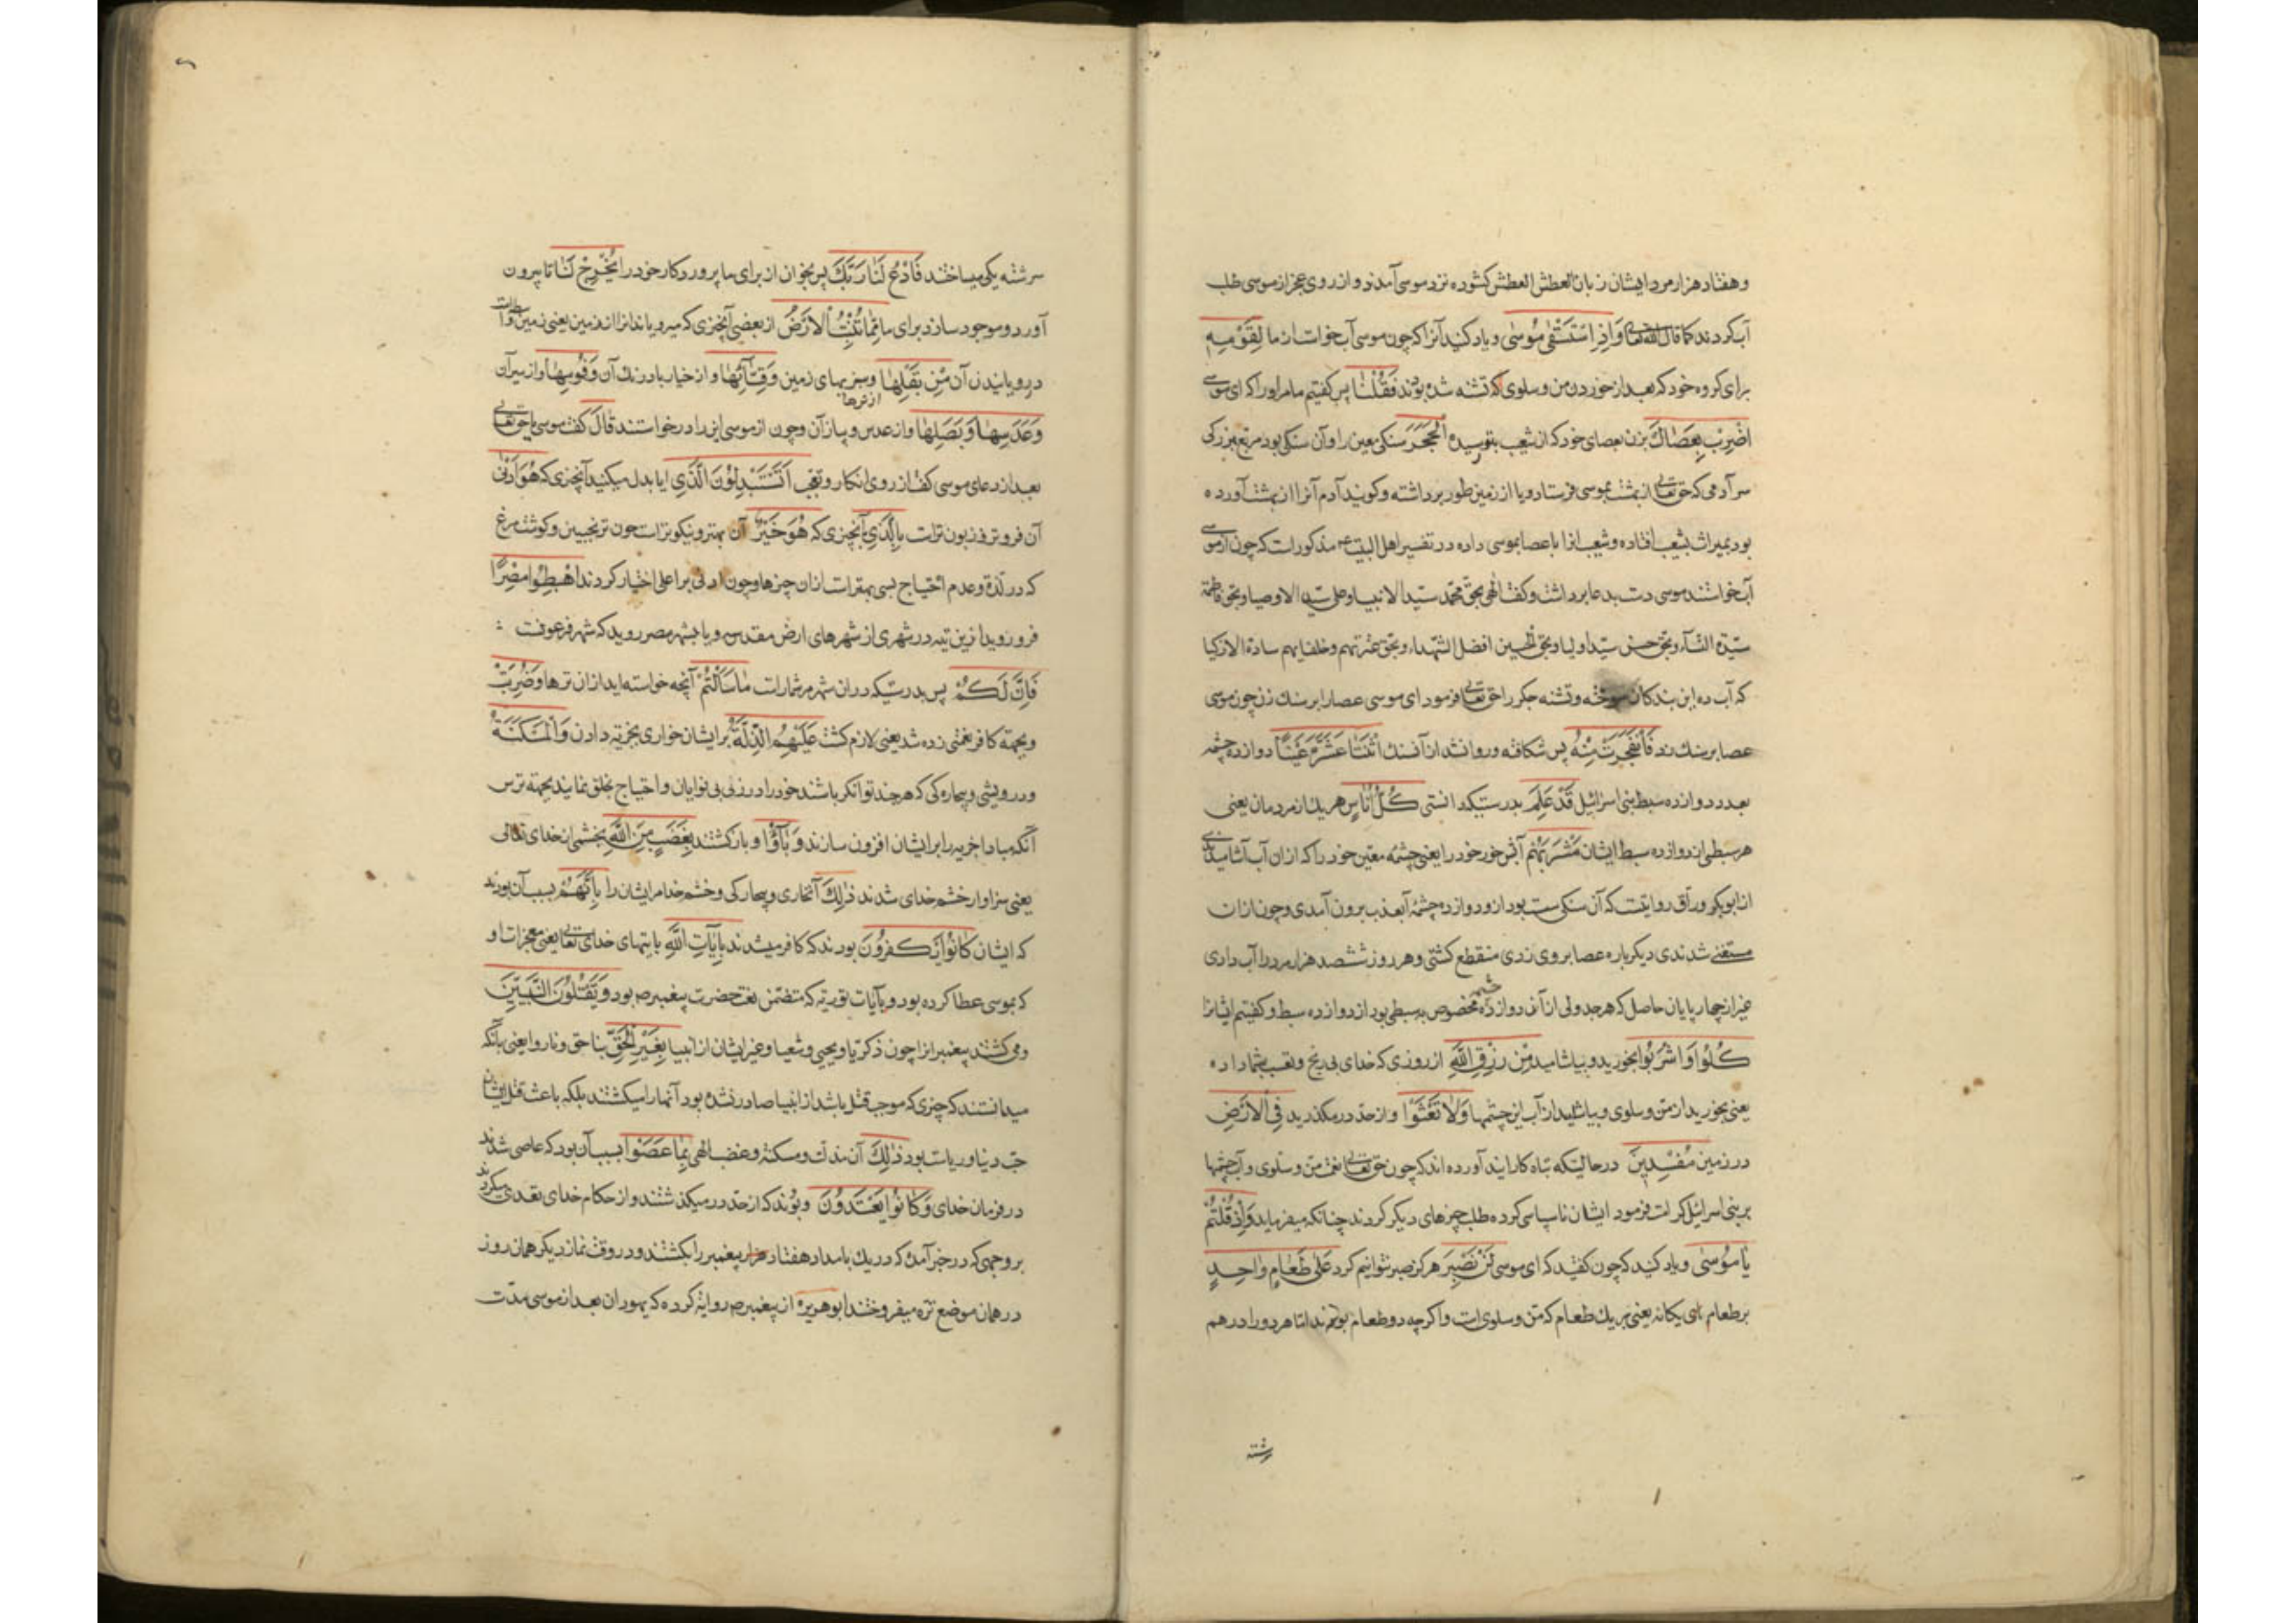 و هفتاد هزار مرد ایشان زبان العطش العطش کشوده نزد موسی آمدند و از روی عجز از موسی طلب
آب کردند کما قال الله تعالی وَاِذِ اسْتَسْقٰی مُوسٰی و یاد کنید آنرا که چون موسی آب خواست از ما لِقَوْمِهِ
برای کروه خود که بعد از خوردن من و سلوی که تشنه شده بودند فَقُلْنَا پس کفتیم ما مر او را که ای موسی
اضْرِبْ بِعَصَاكَ بزن بعصای خود که از شعیب بتو رسیده الْحَجَرَ سنکی معین را و آن سنکی بود مربع ببزرکی
سر آدمی که حق تعالی از بهشت بموسی فرستاد و یا از زمین طور برداشته و کویند آدم آنرا از بهشت آورده
بود بمیراث بشعیب افتاده و شعیب انرا با عصا بموسی داده در تفسیر اهل البیت ع مذکورات که چون از موسی
آب خواستند موسی دست بدعا برداشت و کفت الهی بحق محمد سیّد الانبیا و علی سیّد الاوصیا و بحق فاطمة
سیّدة النساء و بحق حسن سیّد اولیا و بحق الحسین افضل الشهداء و بحق عترتهم و خلفایهم سادة الازکیا
که آب ده این بندکان سوخته و تشنه جکر را حق تعالی فرمود ای موسی عصا را بر سنك زن چون موسی
عصا بر سنك زد فَانْفَجَرَتْ مِنْهُ پس شکافته و روان شد از آن سنك اثْنَتَا عَشْرَةَ عَیْنًا دوازده چشمه
بعدد دوازده سبط بنی اسرائیل قَدْ عَلِمَ بدرستیکه دانستی كُلُّ اُنَاسٍ هر یك از مردمان یعنی
هر سبطی از دوازده سبط ایشان مَشْرَبَهُمْ آبش خور خود را یعنی چشمه معین خود را که ازان آب آشامیدندی
از ابوبکر وراق روایتست که آن سنکی ست بود ازو دوازده چشمهٔ آب عذب برون آمدی و چون ازان
مستغنی شدندی دیکرباره عصا بر وی زدی منقطع کشتی و هر روز ششصد هزار مرد را آب دادی
غیر از چهار پایان حاصل که هر جدولی از آن دوازده چشمه مخصوص به سبطی بود از دوازده سبط و کفتیم ایشانرا
كُلُوا وَاشْرَبُوا بخورید و بیاشامید مِنْ رِزْقِ اللّٰهِ از روزی که خدای بی رنج و تعب بشما داده
یعنی بخورید از منّ و سلوی و بیاشامید از آب این چشمها وَلَا تَعْثَوْا و از حدّ در مکذرید فِی الْاَرْضِ
در زمین مُفْسِدِینَ درحالتیکه تباه کارانید آورده اند که چون حق تعالی نعمت منّ و سلوی و آب چشمها
بر بنی اسرائیل کرامت فرمود ایشان ناسپاسی کرده طلب چیزهای دیکر کردند چنانکه میفرماید وَاِذْ قُلْتُمْ
یَا مُوسٰی و یاد کنید که چون کفتید که ای موسی لَنْ نَصْبِرَ هرکز صبر نتوانیم کرد عَلٰی طَعَامٍ وَاحِدٍ
بر طعام یکانه یعنی بر یك طعام که منّ و سلوی است و اکرچه دو طعام بودند امّا هر دو را در هم
رشته
سرشته یکی میساختند فَادْعُ لَنَا رَبَّكَ پس بخوان از برای ما پروردکار خود را یُخْرِجْ لَنَا تا بیرون
آورد و موجود سازد برای ما مِمَّا تُنْبِتُ الْاَرْضُ از بعضی آنچیزی که میرویاند انرا از زمین یعنی زمین واسطه است
در رویانیدن آن مِنْ بَقْلِهَا و سبزیهای زمین وَقِثَّائِهَا و از خیار بادرنك آن وَفُومِهَا و از سیر آن
از ترها
وَعَدَسِهَا وَبَصَلِهَا و از عدس و پیاز آن و چون از موسی این را درخواستند قَالَ کفت موسی یا حق تعالی
بعد از دعای موسی کفت از روی انکار و تعجب اَتَسْتَبْدِلُونَ الَّذِی ایا بدل میکنید آنچیزی که هُوَ اَدْنٰی
آن فروتر و زبون ترات بِالَّذِی بآنچیزی که هُوَ خَیْرٌ آن بهتر و نیکوترات چون ترنجبین و کوشت مرغ
که در لذة و عدم احتیاج بسی بهترات ازان چیزها و چون ادنی بر اعلی اختیار کردند اهْبِطُوا مِصْرًا
فرو روید ازین تیه در شهری از شهرهای ارض مقدسه و یا بشهر مصر روید که شهر فرعونست
فَاِنَّ لَكُمْ پس بدرستیکه دران شهر مر شمارات مَا سَاَلْتُمْ آنچه خواسته اید ازان ترها وَضُرِبَتْ
و بجهة کافر نعمتی زده شد یعنی لازم کشت عَلَیْهِمُ الذِّلَّةُ بر ایشان خواری بجزیه دادن وَالْمَسْكَنَةُ
و درویشی و بیچارکی که هرچند توانکر باشند خود را در زی بی نوایان و احتیاج بخلق نمایند بجهة ترس
آنکه مبادا جزیه را بر ایشان افزون سازند وَبَآؤُا و بازکشتند بِغَضَبٍ مِنَ اللّٰهِ بخشمی از خدای تعالی
یعنی سزاوار خشم خدای شدند ذٰلِكَ آنخاری و بیچارکی و خشم خدا مر ایشان را بِاَنَّهُمْ بسبب آن بودند
که ایشان كَانُوا یَكْفُرُونَ بودند که کافر میشدند بِاٰیَاتِ اللّٰهِ بایتهای خدای تعالی یعنی معجزات او
که بموسی عطا کرده بود و بآیات توریة که متضمّن نعت حضرت پیغمبر ص بود وَیَقْتُلُونَ النَّبِیِّینَ
و می کشتند پیغمبرانرا چون زکریا و یحیی و شعیا و غیر ایشان از انبیا بِغَیْرِ الْحَقِّ بنا حق و ناروا یعنی بآنکه
میدانستند که چیزی که موجب قتل باشد از انبیا صادر نشده بود آنها را میکشتند بلکه باعث قتل ایشان
حبّ دنیا و ریاست بود ذٰلِكَ آن مذلّت و مسکنة و غضب الهی بِمَا عَصَوْا بسبب آن بود که عاصی شدند
در فرمان خدای وَكَانُوا یَعْتَدُونَ و بودند که از حدّ در میکذشتند و از حکام خدای تعدی میکردند
بر وجهی که در خبر آمده که در یك بامداد هفتاد هزار پیغمبر را بکشتند و در وقت نماز دیکر همان روز
در همان موضع ترّه میفروختند ابوهریره از پیغمبر ص روایة کرده که یهودان بعد از موسی مدّت